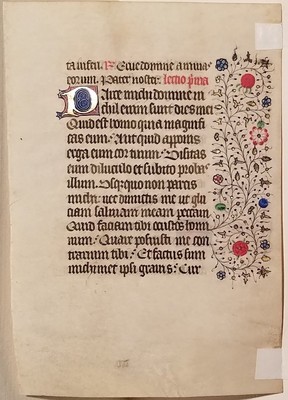 ta inferi. R Erue domine animas
eorum. Pater noster. lectio prima
Parce michi domine ni
chil enim sunt dies mei
Quid est homo quia magnifi
cas eum: Aut quid apponis
erga eum cor tuum: Visitas
eum diluculo et subito probas
illum: Usquequo non parcis
michi: nec dimittis me ut glu
ciam salivam meam peccavi
Quid faciam tibi o custos homi
num: Quare posuisti me con
trarium tibi: Et factus sum
michimet ipsi gravis: Cur